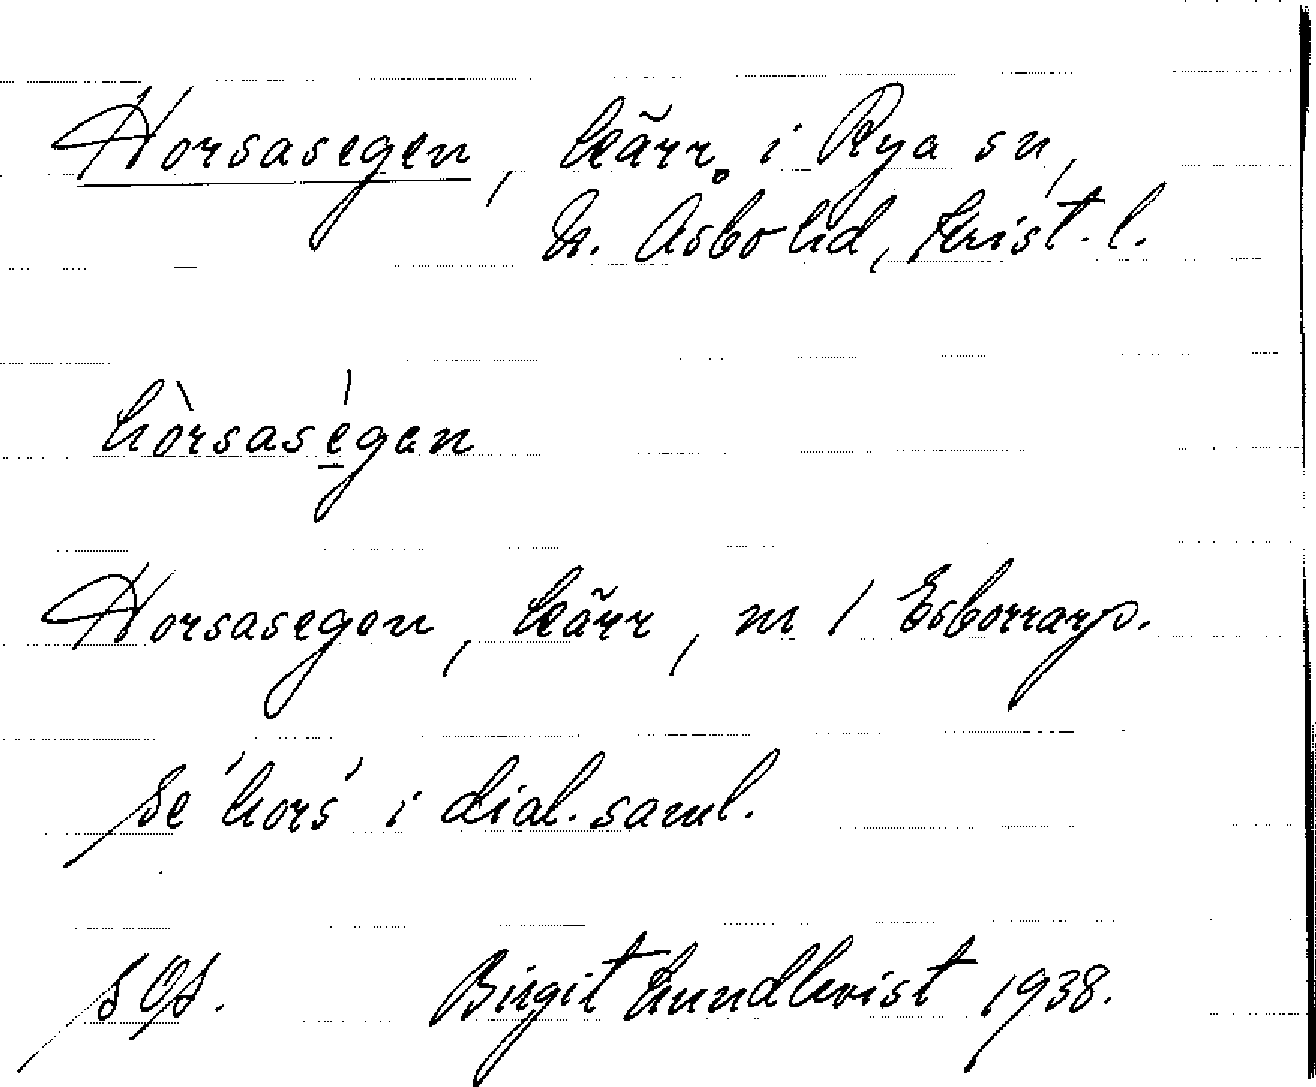 Horsasegen, kärr i Rya sn,
N. Åsbo hd, Krist. l.
hòrsaségen
Horsasegen, kärr, nr 1 Esborrarp.
Se 'hors' i dial. saml.
Birgit Lundkvist 1938.